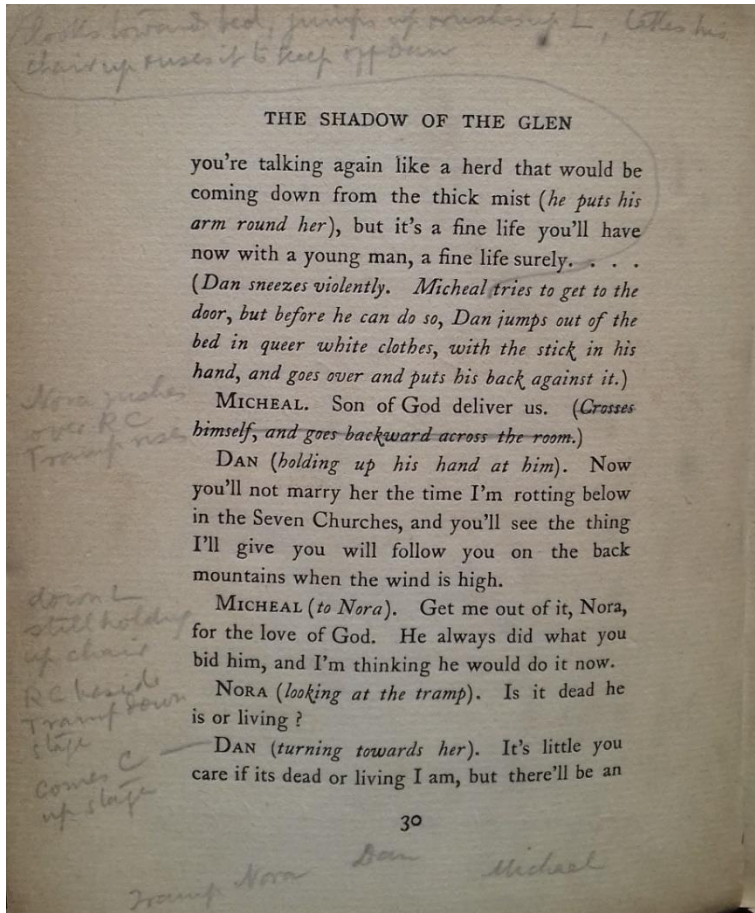 looks towards bed, jumps up rushes up L, takes his
chair up & uses it to keep off Dan
THE SHADOW OF THE GLEN
you're talking again like a herd that would be
coming down from the thick mist (he puts his
arm round her), but it's a fine life you'll have
now with a young man, a fine life surely. . . .
(Dan sneezes violently. Micheal tries to get to the
door, but before he can do so, Dan jumps out of the
bed in queer white clothes, with the stick in his
hand, and goes over and puts his back against it.)
Nora rushes
over RC
Tramp rises
MICHEAL. Son of God deliver us. (Crosses
himself, and goes backward across the room.)
DAN (holding up his hand at him). Now
you'll not marry her the time I'm rotting below
in the Seven Churches, and you'll see the thing
I'll give you will follow you on the back
mountains when the wind is high.
down L
still holding
up chair
MICHEAL (to Nora). Get me out of it, Nora,
for the love of God. He always did what you
bid him, and I'm thinking he would do it now.
RC beside
Tramp down
stage
NORA (looking at the tramp). Is it dead he
is or living ?
comes C
up stage
DAN (turning towards her). It's little you
care if its dead or living I am, but there'll be an
30
Tramp Nora Dan Michael